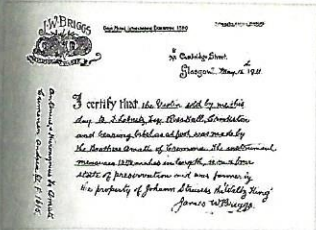 J.W. BRIGGS
Gold Medal, International Exhibition 1890
Cambridge Street,
Glasgow. May, 12 1911.
I certify that the Violin sold by me this
day to
and bearing label as foot was made
by the Brothers Amati of Cremona. The instrument
measures inches in length, is in a fine
state of preservation and was formerly
the property of Johann Strauss the "Waltz King"
James W Briggs
Antonius & Hieronymus Fr. Amati
Cremonen. Andreæ fil. F. 1615.